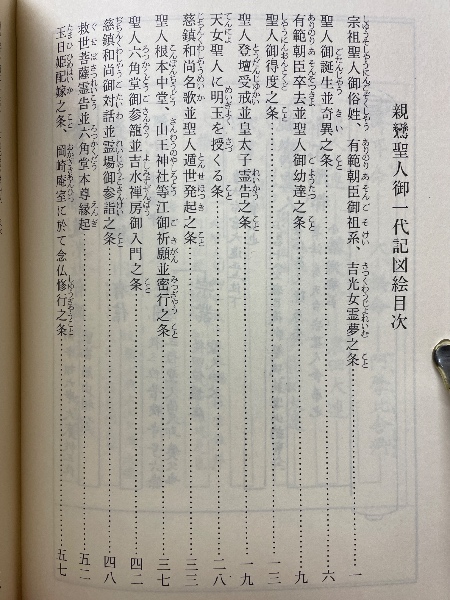 親鸞聖人御一代記図絵目次
宗祖聖人御俗姓、有範朝臣御祖系、吉光女霊夢之条……一
聖人御誕生並奇異之条……六
有範朝臣卒去並聖人御幼達之条……九
聖人御得度之条……一三
聖人登壇受戒並皇太子霊告之条……一九
天女聖人に明玉を授くる条……二八
慈鎮和尚名歌並聖人遁世発起之条……三三
聖人根本中堂、山王神社等江御祈願並密行之条……三七
聖人六角堂御参籠並吉水禅房御入門之条……四二
慈鎮和尚御対話並霊場御参詣之条……四八
救世菩薩霊告並六角堂本尊縁起……五二
玉日姫配嫁之条、岡崎庵室に於て念仏修行之条……五七